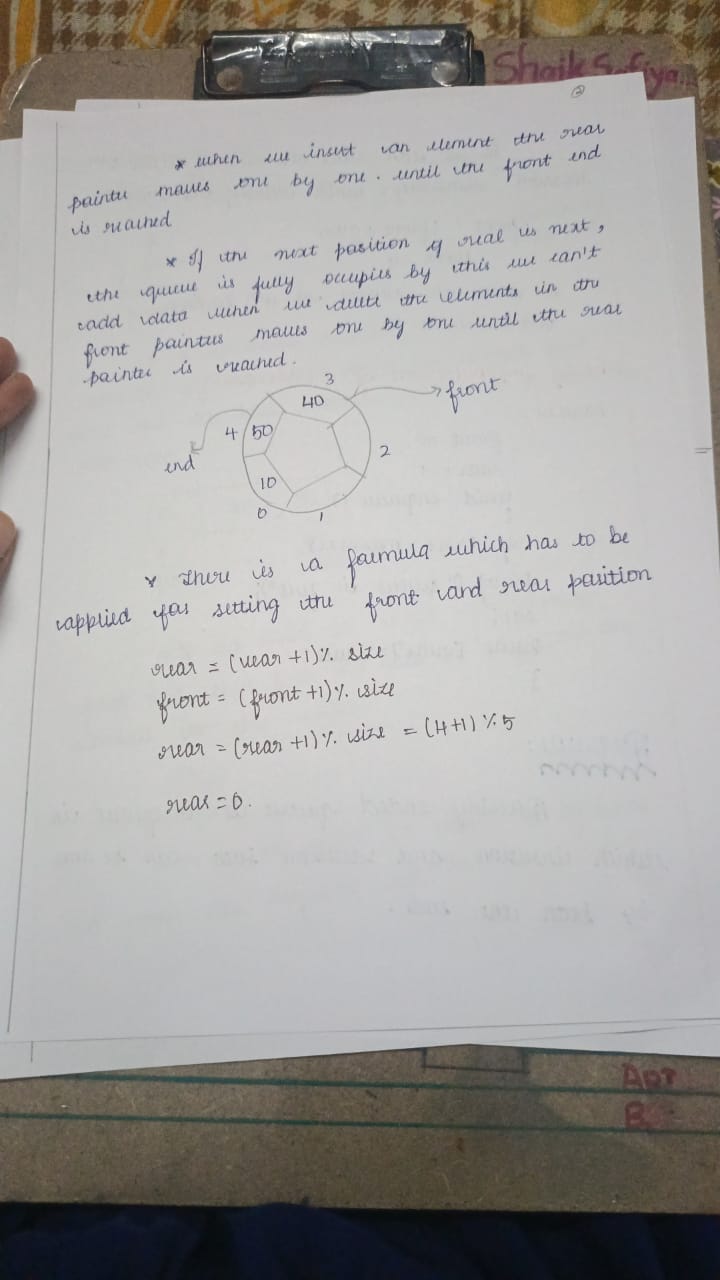 Shaik Sufiya
2
* when we insert an element the rear
pointer moves one by one. until the front end
is reached
* If the next position of rear is next,
the queue is fully occupies by this we can't
add data when we delete the elements in the
front pointers moves one by one until the rear
pointer is reached.
3
40
front
4
50
2
end
10
0
1
* There is a formula which has to be
applied for setting the front and rear position
rear = (rear +1)% size
front = (front +1)% size
rear = (rear +1)% size = (4+1) %5
rear = 0.